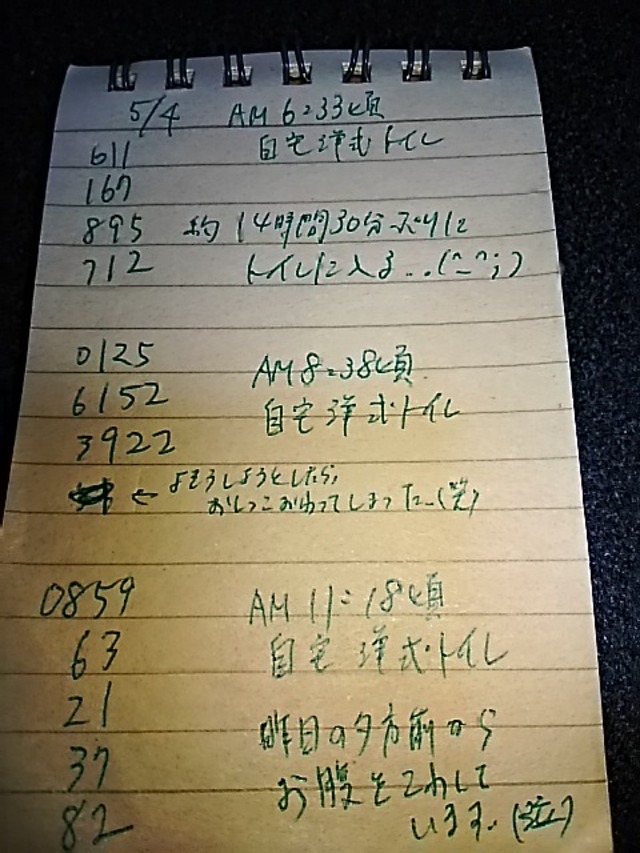 5/4 AM 6:33頃
611 自宅洋式トイレ
167
895 約14時間30分ぶりに
712 トイレに入る...(^_^;)
0125
AM 8:38頃
6152
自宅洋式トイレ
3922
← よそうしようとしたら、
おしっこおわってしまった...(笑)
0859 AM 11:18頃
63 自宅洋式トイレ
21
昨日の夕方前から
37
お腹をこわして
82 います。(泣)